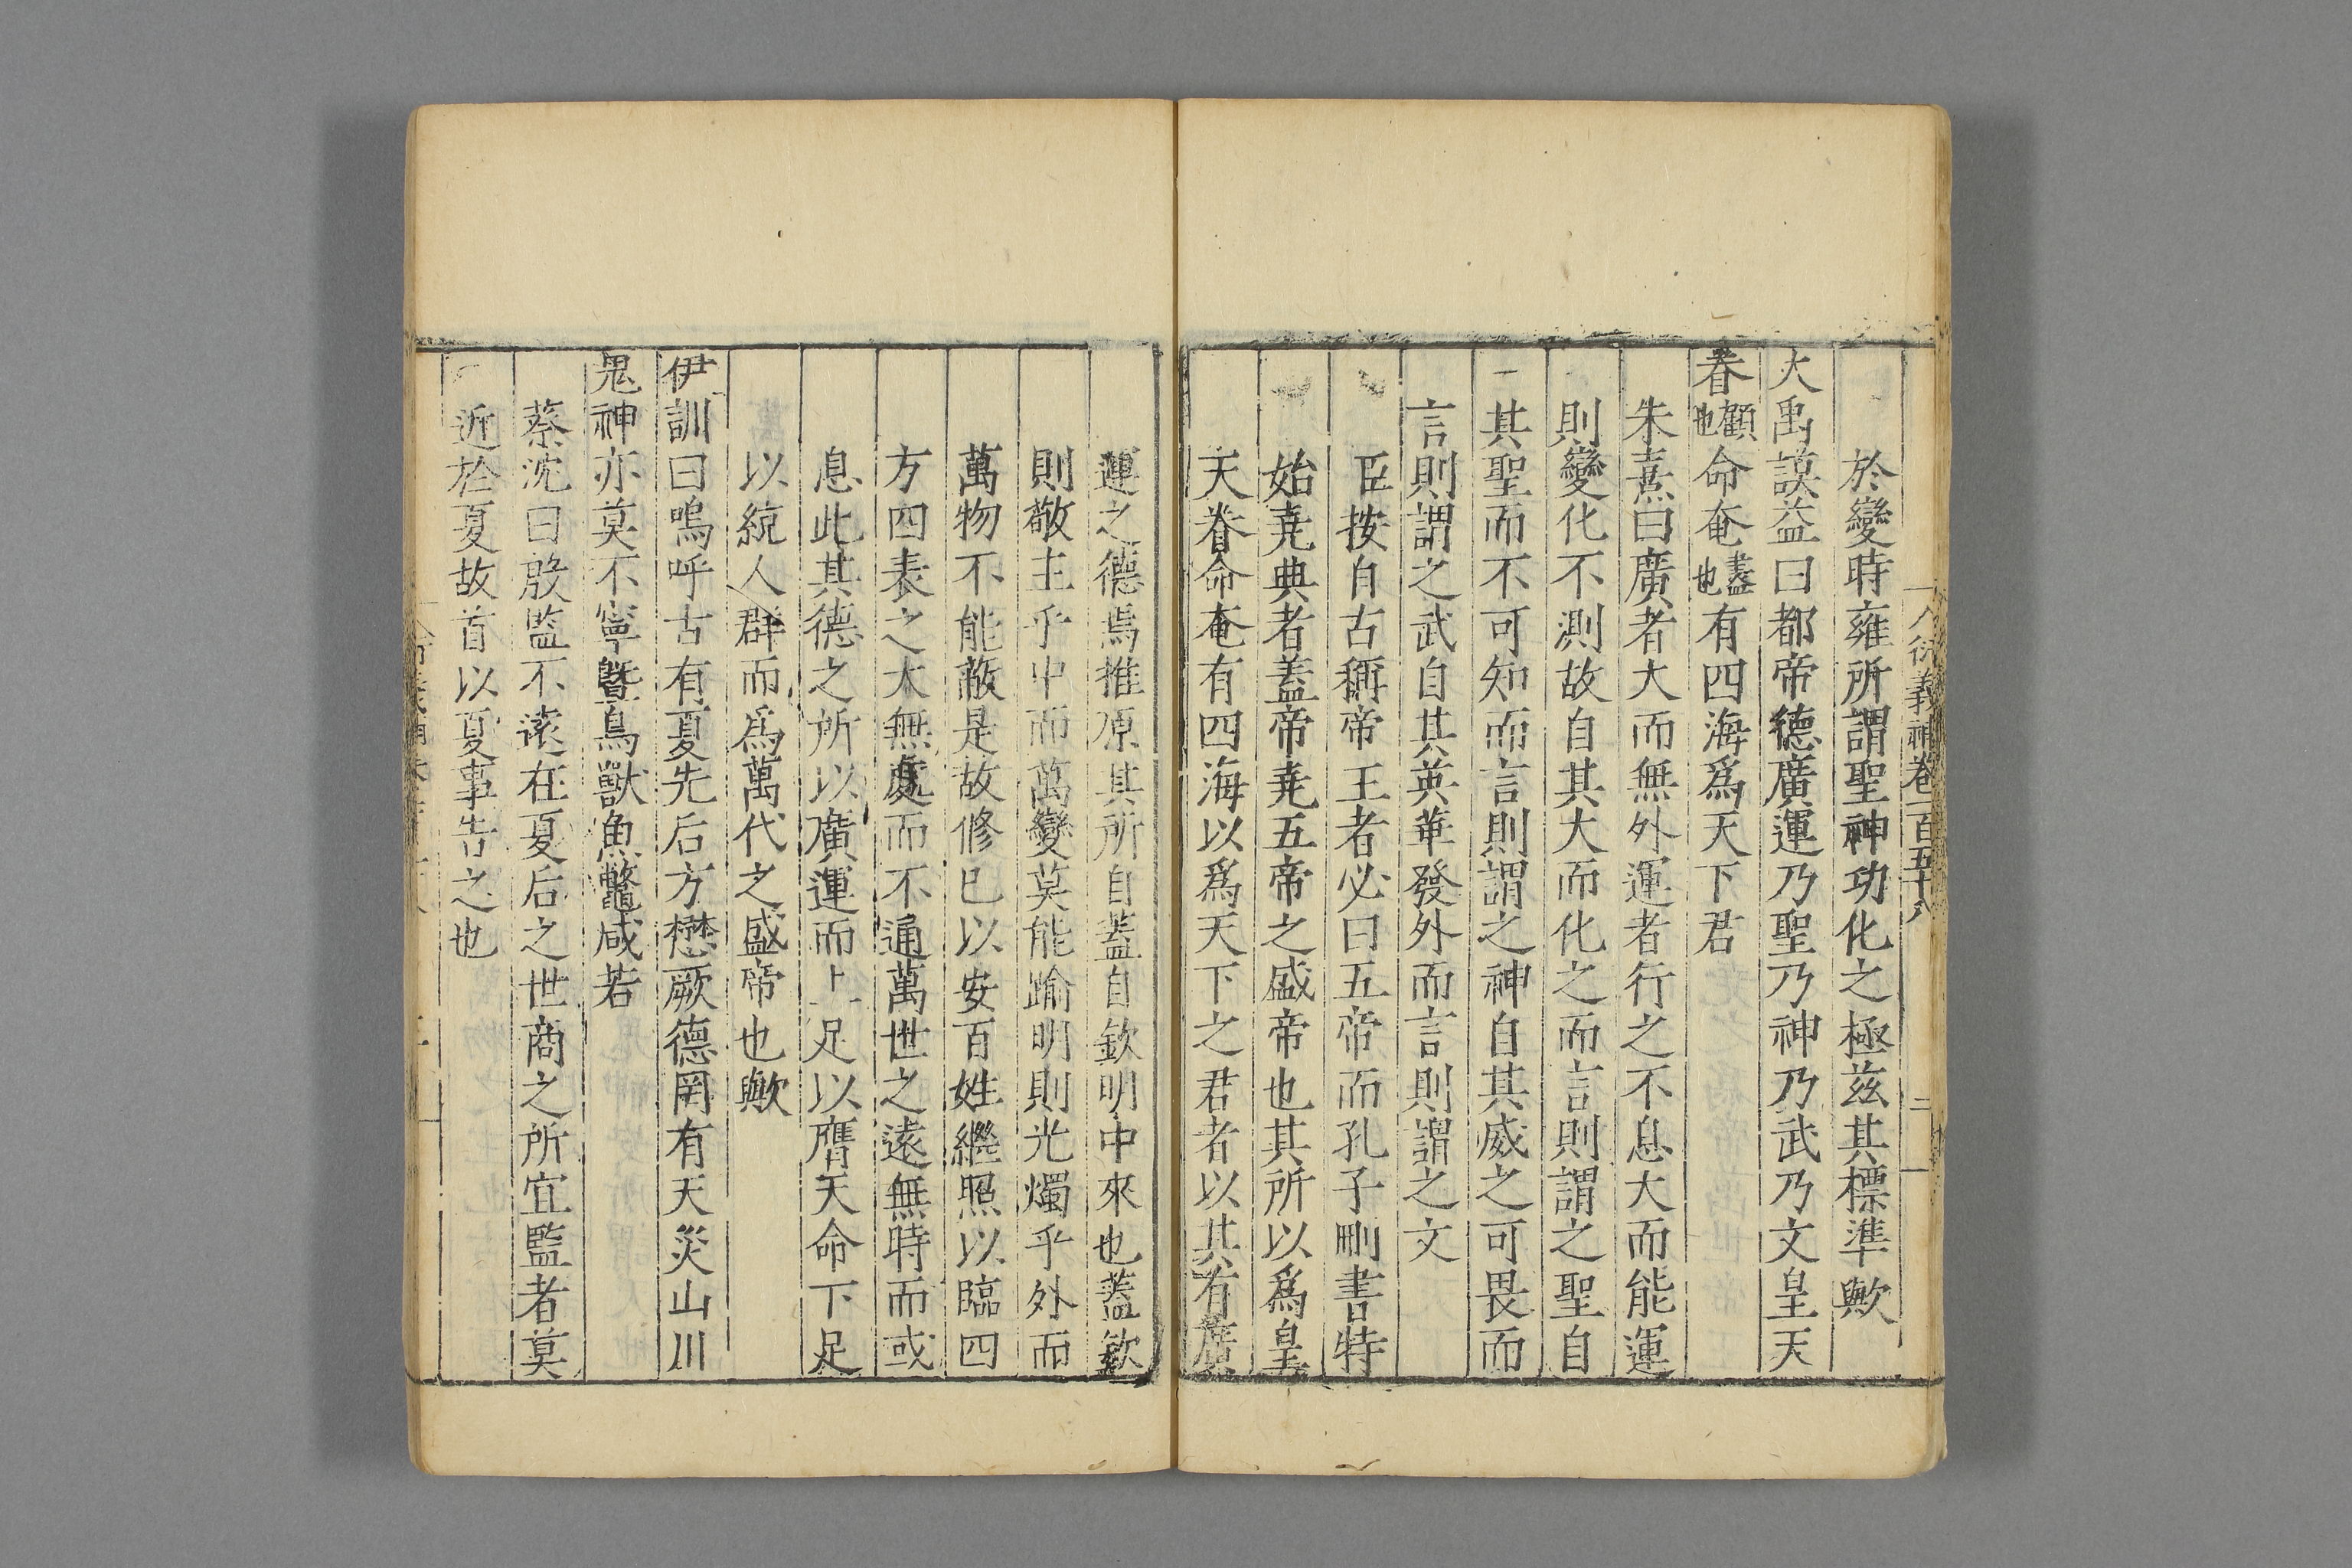 衍義補卷一百五十八 二
於變時雍所謂聖神功化之極兹其標準歟
大禹謨益曰都帝德廣運乃聖乃神乃武乃文皇天
眷顧也命奄盡也有四海爲天下君
朱熹曰廣者大而無外運者行之不息大而能運
則變化不測故自其大而化之而言則謂之聖自
其聖而不可知而言則謂之神自其威之可畏而
言則謂之武自其英華發外而言則謂之文
臣按自古稱帝王者必曰五帝而孔子刪書特
始堯典者蓋帝堯五帝之盛帝也其所以爲皇
天眷命奄有四海以爲天下之君者以其有廣
運之德焉推原其所自蓋自欽明中來也蓋欽
則敬主乎中而萬變莫能踰明則光燭乎外而
萬物不能蔽是故修己以安百姓繼照以臨四
方四表之大無處而不通萬世之遠無時而或
息此其德之所以廣運而上足以膺天命下足
以統人群而爲萬代之盛帝也歟
伊訓曰嗚呼古有夏先后方懋厥德罔有天災山川
鬼神亦莫不寧曁鳥獸魚鼈咸若
蔡沈曰殷監不遠在夏后之世商之所宜監者莫
近於夏故首以夏事告之也